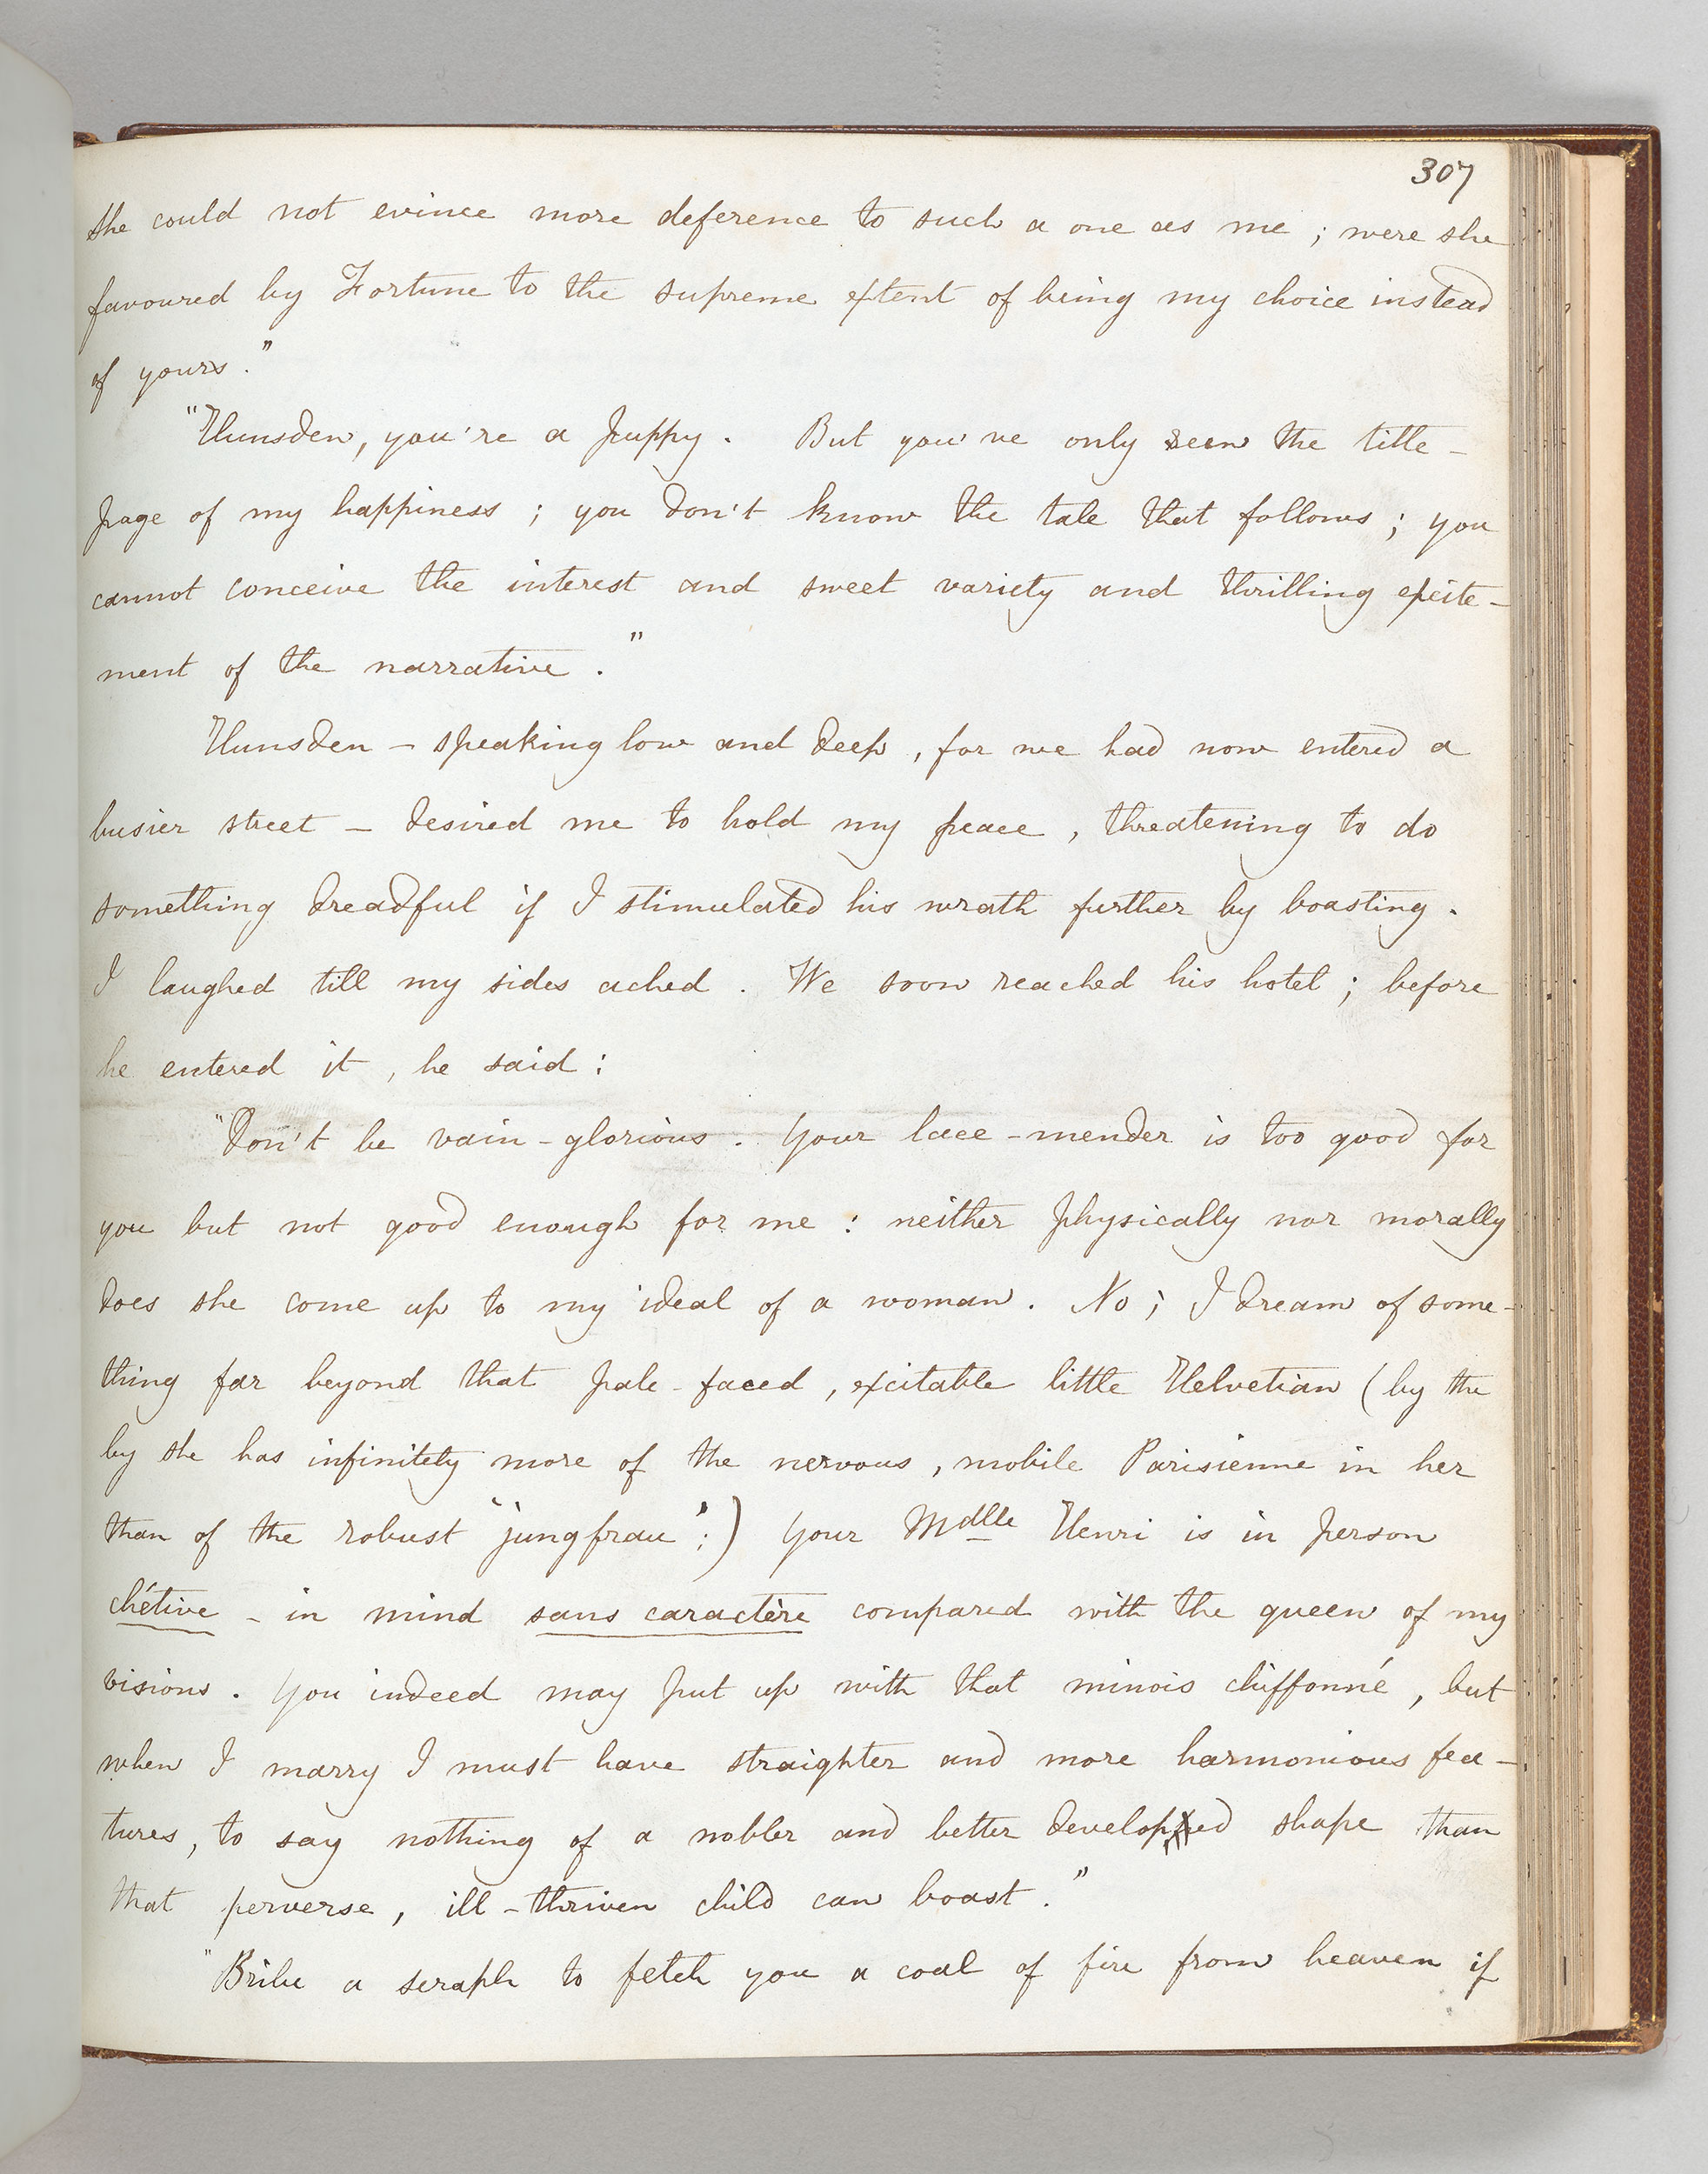 307
she could not evince more deference to such a one as me ; were she
favoured by Fortune to the supreme extent of being my choice instead
of yours ."
"Hunsden, you're a puppy . But you've only seen the title -
page of my happiness ; you don't know the tale that follows ; you
cannot conceive the interest and sweet variety and thrilling excite -
ment of the narrative ."
Hunsden - speaking low and deep , for we had now entered a
busier street - desired me to hold my peace , threatening to do
something dreadful if I stimulated his wrath further by boasting .
I laughed till my sides ached . We soon reached his hotel ; before
he entered it , he said :
"Don't be vain-glorious . Your lace-mender is too good for
you but not good enough for me : neither physically nor morally
does she come up to my ideal of a woman . No ; I dream of some -
thing far beyond that pale-faced , excitable little Helvetian ( by the
by she has infinitely more of the nervous , mobile Parisienne in her
than of the robust "jungfrau" ; ) Your Mdlle Henri is in person
chétive - in mind sans caractère compared with the queen of my
visions . You indeed may put up with that minois chiffonné , but
when I marry I must have straighter and more harmonious fea -
tures , to say nothing of a nobler and better developed shape than
that perverse , ill-thriven child can boast ."
"Bribe a seraph to fetch you a coal of fire from heaven if